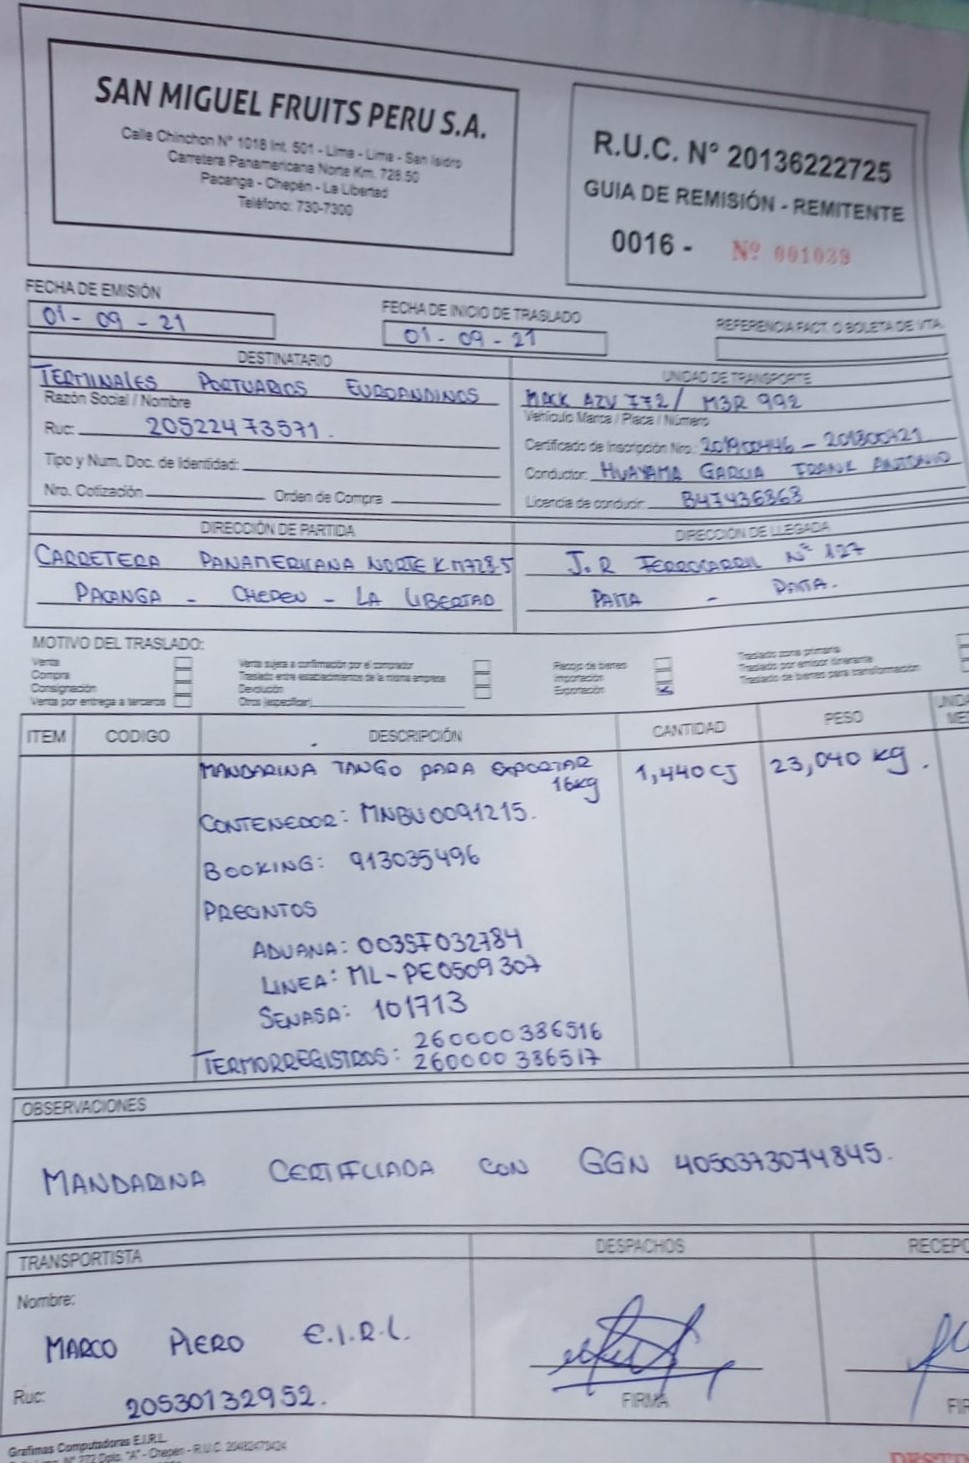 SAN MIGUEL FRUITS PERU S.A.
Calle Chinchon N° 1018 Int. 501 - Lima - Lima - San Isidro
Carretera Panamericana Norte Km. 728.50
Pacanga - Chepén - La Libertad
Teléfono: 730-7300
R.U.C. N° 20136222725
GUIA DE REMISIÓN - REMITENTE
0016 - Nº 001039
FECHA DE EMISIÓN
01 - 09 - 21
FECHA DE INICIO DE TRASLADO
01 - 09 - 21
REFERENCIA FACT. O BOLETA DE VTA.
DESTINATARIO
TERMINALES PORTUARIOS EUROANDINOS
Razón Social / Nombre
Ruc: 20522473571.
Tipo y Num. Doc. de Identidad:
Nro. Cotización Orden de Compra
UNIDAD DE TRANSPORTE
MACK AZV 772 / M3R 992
Vehículo Marca / Placa / Número
Certificado de Inscripción Nro.: 201900446 - 201800721
Conductor: HUAYAMA GARCIA FRANK ANTONIO
Licencia de conducir: B47436363
DIRECCIÓN DE PARTIDA
CARRETERA PANAMERICANA NORTE KM728.5
PACANGA - CHEPEN - LA LIBERTAD
DIRECCIÓN DE LLEGADA
J.R FERROCARRIL Nº 127
PAITA - PAITA.
MOTIVO DEL TRASLADO:
Venta
Compra
Consignación
Venta por entrega a terceros
Venta sujeta a confirmación por el comprador
Traslado entre establecimientos de la misma empresa
Devolución
Otros (especificar)
Recojo de bienes
Importación
Exportación
Traslado zona primaria
Traslado por emisor itinerante
Traslado de bienes para transformación
ITEM CODIGO DESCRIPCIÓN CANTIDAD PESO
MANDARINA TANGO PARA EXPORTAR 1,440 CJ 23,040 kg.
16kg
CONTENEDOR: MNBU0091215.
BOOKING: 913035496
PRECINTOS
ADUANA: 003SF032784
LINEA: ML-PE0509307
SENASA: 101713
260000386516
TERMORREGISTROS: 260000386517
OBSERVACIONES
MANDARINA CERTIFICIADA CON GGN 4050373074845.
TRANSPORTISTA
Nombre:
MARCO PIERO E.I.R.L.
Ruc: 20530132952.
DESPACHOS
FIRMA
RECEPC
FIR
Grafimas Computadoras E.I.R.L.
Nº 772 Dpto. "A" - Chepén - R.U.C. 20482473424
DESTO